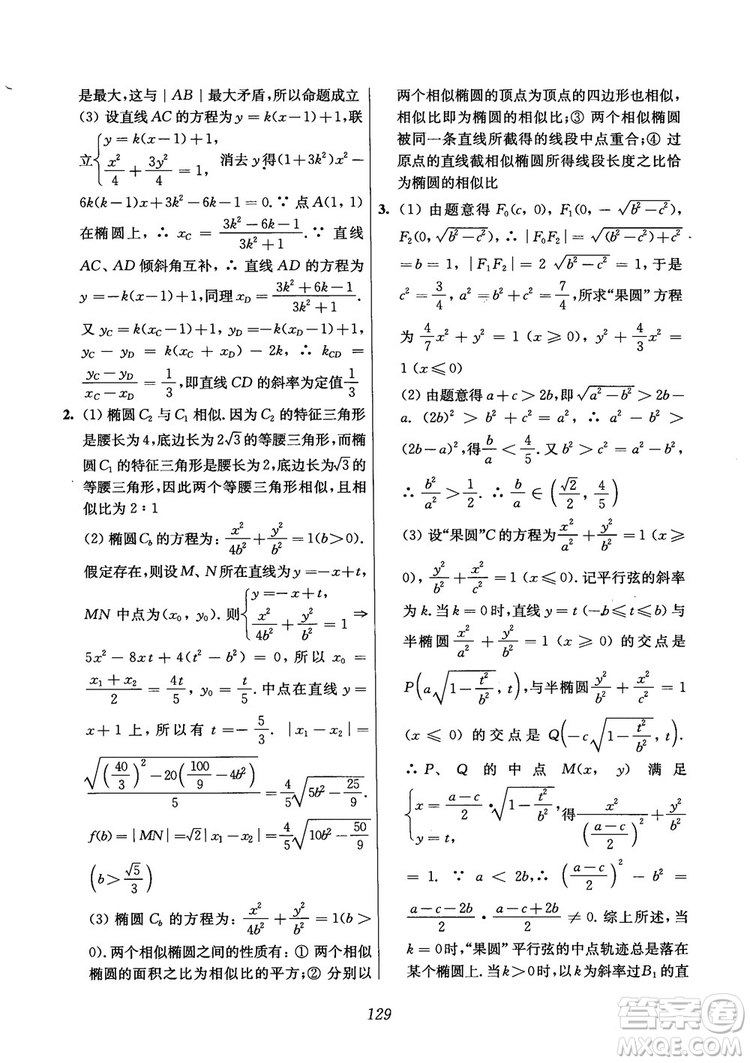 是最大，这与｜AB｜最大矛盾，所以命题成立
(3) 设直线 AC 的方程为 y=k(x-1)+1, 联
立{y=k(x-1)+1, x²/4+3y²/4=1, 消去 y 得(1+3k²)x²-
6k(k-1)x+3k²-6k-1=0. ∵ 点 A(1, 1)
在椭圆上, ∴ x_C=(3k²-6k-1)/(3k²+1). ∵ 直线
AC、AD 倾斜角互补, ∴ 直线 AD 的方程为
y=-k(x-1)+1, 同理 x_D=(3k²+6k-1)/(3k²+1).
又 y_C=k(x_C-1)+1, y_D=-k(x_D-1)+1,
y_C-y_D=k(x_C+x_D)-2k, ∴ k_CD=
(y_C-y_D)/(x_C-x_D)=1/3, 即直线 CD 的斜率为定值 1/3
2. (1) 椭圆 C₂ 与 C₁ 相似. 因为 C₂ 的特征三角形
是腰长为 4, 底边长为 2√3 的等腰三角形, 而椭
圆 C₁ 的特征三角形是腰长为 2, 底边长为√3 的
等腰三角形, 因此两个等腰三角形相似, 且相
似比为 2∶1
(2) 椭圆 C_b 的方程为: x²/4b²+y²/b²=1(b>0).
假定存在, 则设 M、N 所在直线为 y=-x+t,
MN 中点为(x₀, y₀). 则{y=-x+t, x²/4b²+y²/b²=1 ⇒
5x²-8xt+4(t²-b²)=0, 所以 x₀=
(x₁+x₂)/2=4t/5, y₀=t/5. 中点在直线 y=
x+1 上, 所以有 t=-5/3. |x₁-x₂|=
√((40/3)²-20(100/9-4b²))/5=4/5√(5b²-25/9).
f(b)=|MN|=√2|x₁-x₂|=4/5√(10b²-50/9)
(b>√5/3)
(3) 椭圆 C_b 的方程为: x²/4b²+y²/b²=1(b>
0). 两个相似椭圆之间的性质有: ① 两个相似
椭圆的面积之比为相似比的平方; ② 分别以
两个相似椭圆的顶点为顶点的四边形也相似,
相似比即为椭圆的相似比; ③ 两个相似椭圆
被同一条直线所截得的线段中点重合; ④ 过
原点的直线截相似椭圆所得线段长度之比恰
为椭圆的相似比
3. (1) 由题意得 F₀(c, 0), F₁(0, -√(b²-c²)),
F₂(0, √(b²-c²)), ∴ |F₀F₂|=√((b²-c²)+c²)
=b=1, |F₁F₂|=2√(b²-c²)=1, 于是
c²=3/4, a²=b²+c²=7/4, 所求“果圆”方程
为 4/7x²+y²=1 (x≥0), y²+4/3x²=
1(x≤0)
(2) 由题意得 a+c>2b, 即√(a²-b²)>2b-
a. (2b)²>b²+c²=a² ∴ a²-b²>
(2b-a)², 得 b/a<4/5. 又 b²>c²=a²-b²,
∴ b²/a²>1/2. ∴ b/a∈(√2/2, 4/5)
(3) 设“果圆”C 的方程为 x²/a²+y²/b²=1 (x≥
0), y²/b²+x²/c²=1 (x≤0). 记平行弦的斜率
为 k. 当 k=0 时, 直线 y=t (-b≤t≤b) 与
半椭圆 x²/a²+y²/b²=1 (x≥0) 的交点是
P(a√(1-t²/b²), t), 与半椭圆 y²/b²+x²/c²=1
(x≤0) 的交点是 Q(-c√(1-t²/b²), t).
∴ P、Q 的中点 M(x, y) 满足
{x=(a-c)/2·√(1-t²/b²), y=t, 得 x²/((a-c)/2)²+y²/b²
=1. ∵ a<2b, ∴ ((a-c)/2)²-b²=
(a-c-2b)/2·(a-c+2b)/2≠0. 综上所述, 当
k=0 时, “果圆”平行弦的中点轨迹总是落在
某个椭圆上. 当 k>0 时, 以 k 为斜率过 B₁ 的直
129
答案圈
MXQE.COM